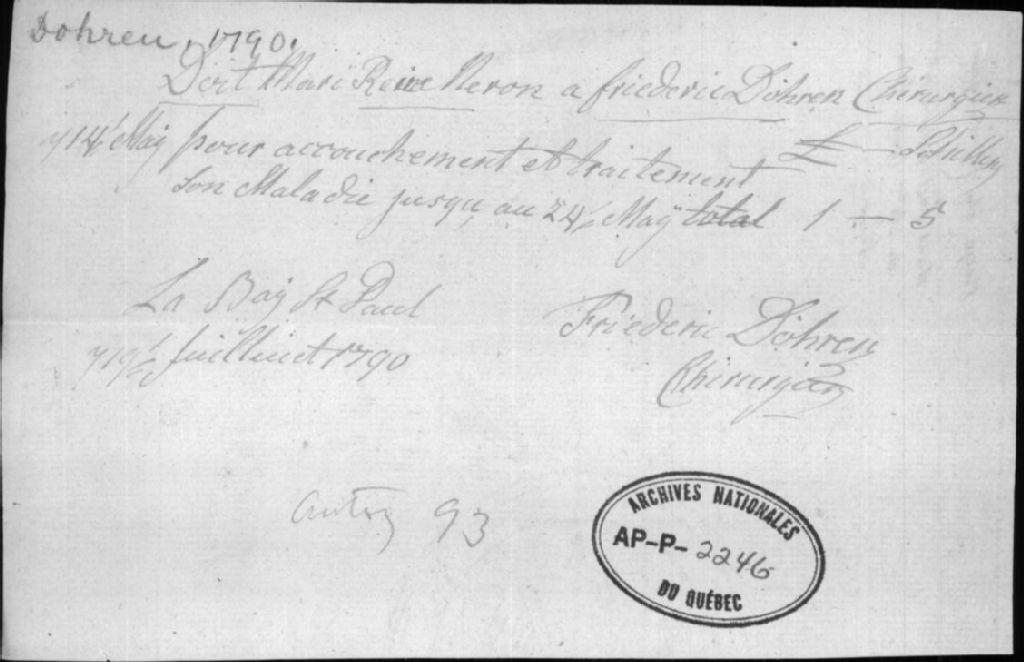 Dohren, 1790.
Doit Mari Reine Neron a friederic Döhren Chirurgien
14 Maÿ pour accouchement et traitement £ — Schilling
son Maladie jusqu au 24 Maÿ total 1 — 5
La Baÿ St Paul
19 Juilliuet 1790
Friederic Döhren
Chirurgien
93
ARCHIVES NATIONALES
AP-P-2246
DU QUÉBEC